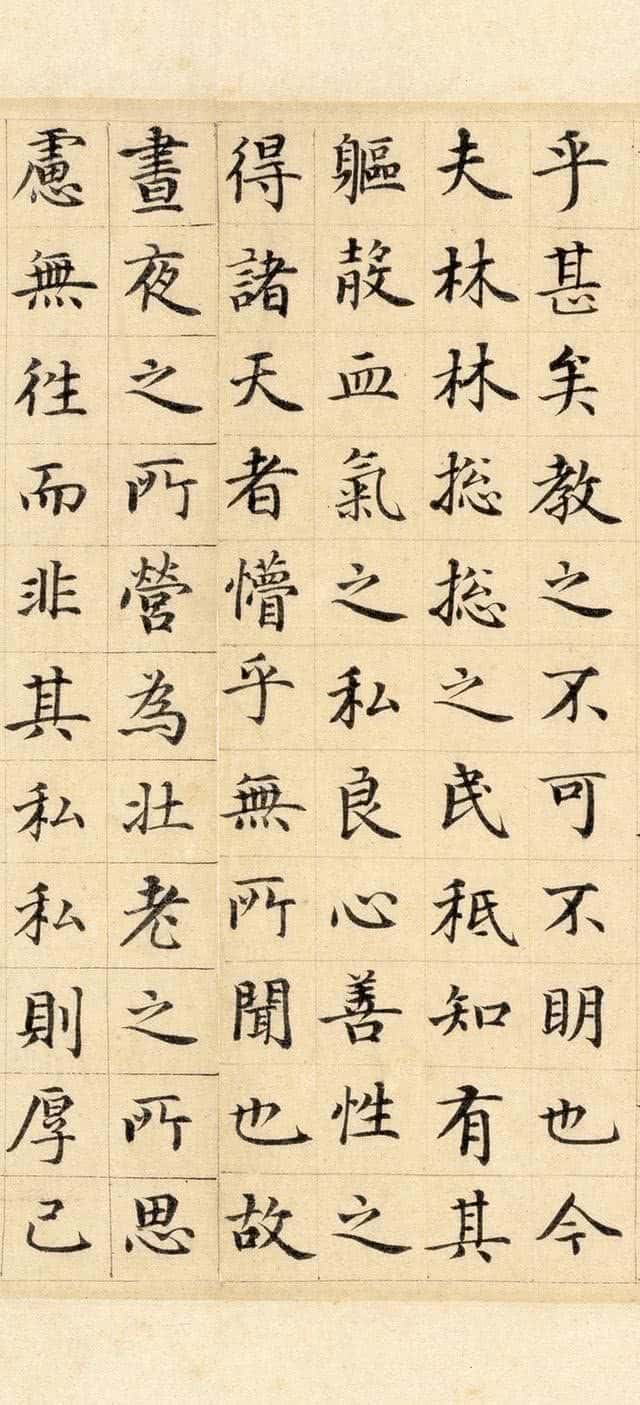 乎甚矣教之不可不明也今
夫林林揔揔之民秪知有其
軀殼血氣之私良心善性之
得諸天者懵乎無所聞也故
晝夜之所營為壯老之所思
慮無徃而非其私私則厚己